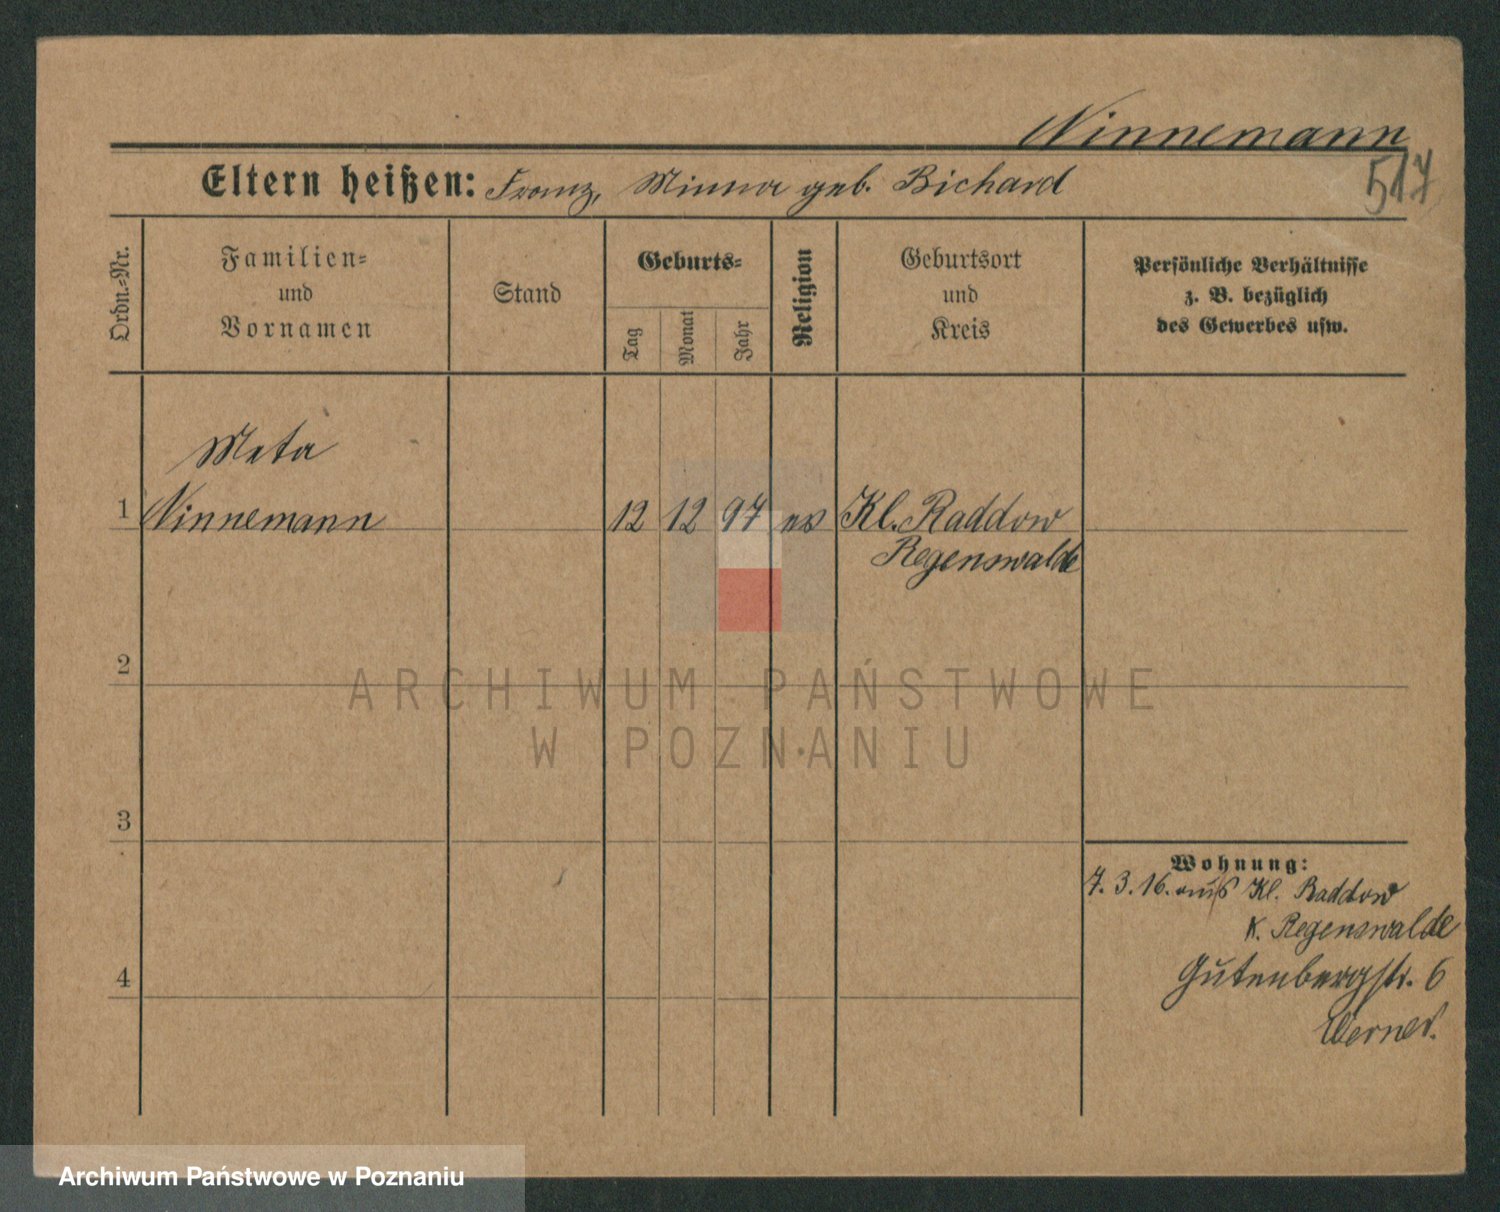 Ninnemann
517
Eltern heißen: Franz, Minna geb. Bichard
Ordn.-Nr.
Familien-
und
Vornamen
Stand
Geburts-
Tag
Monat
Jahr
Religion
Geburtsort
und
Kreis
Persönliche Verhältnisse
z. B. bezüglich
des Gewerbes usw.
Meta
1 Ninnemann 12 12 97 ev Kl. Raddow
Regenswalde
2
ARCHIWUM PAŃSTWOWE
W POZNANIU
3
Wohnung:
7. 3. 16. aus Kl. Raddow
K. Regenswalde
4
Gutenbergstr. 6
Werner.
Archiwum Państwowe w Poznaniu